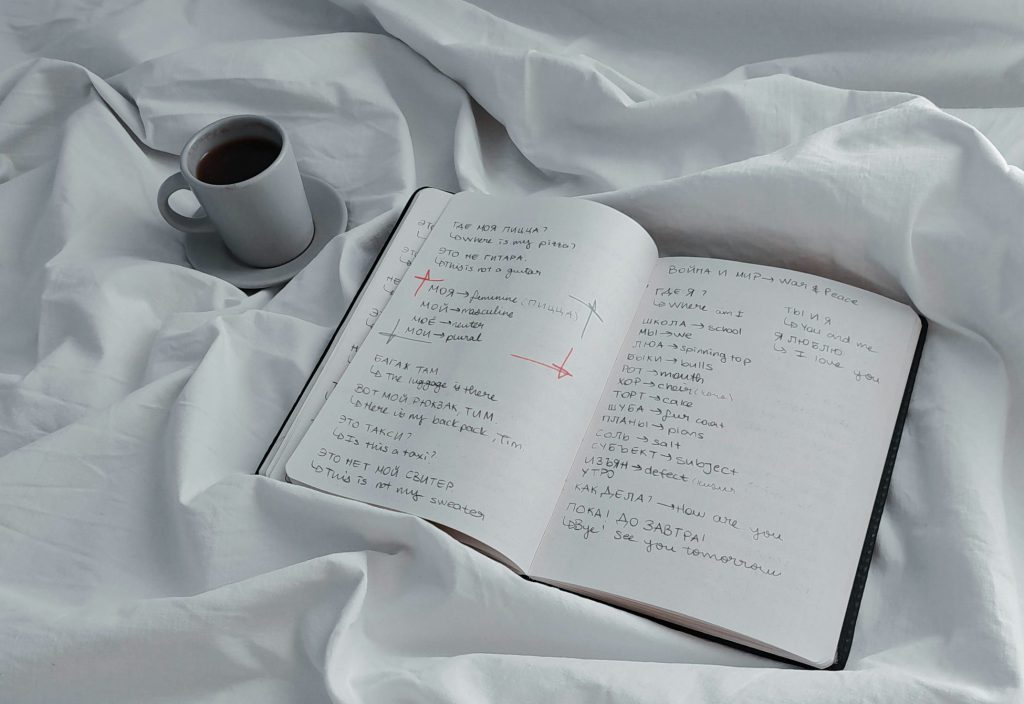 ЭТО
ЭТО
НЕ
ЭТО
ГДЕ МОЯ ПИЦЦА?
↳Where is my pizza?
ЭТО НЕ ГИТАРА.
↳This is not a guitar
МОЯ→feminine (ПИЦЦА)
МОЙ→masculine
МОЁ→neuter
МОИ→plural
БАГАЖ ТАМ
↳The luggage is there
ВОТ МОЙ РЮКЗАК, ТИМ.
↳Here is my backpack, Tim
ЭТО ТАКСИ?
↳Is this a taxi?
ЭТО НЕТ МОЙ СВИТЕР
↳This is not my sweater
ВОЙНА И МИР→War & Peace
ГДЕ Я?
↳Where am I
ШКОЛА→school
МЫ→we
ЛЮА→spinning top
БЫКИ→bulls
РОТ→mouth
ХОР→choir
ТОРТ→cake
ШУБА→fur coat
ПЛАНЫ→plans
СОЛЬ→salt
СУБЪЕКТ→subject
ИЗЪЯН→defect
УТРО
КАК ДЕЛА?→How are you
ПОКА! ДО ЗАВТРА!
↳Bye! See you tomorrow
ТЫ И Я
↳You and me
Я ЛЮБЛЮ
↳I love you